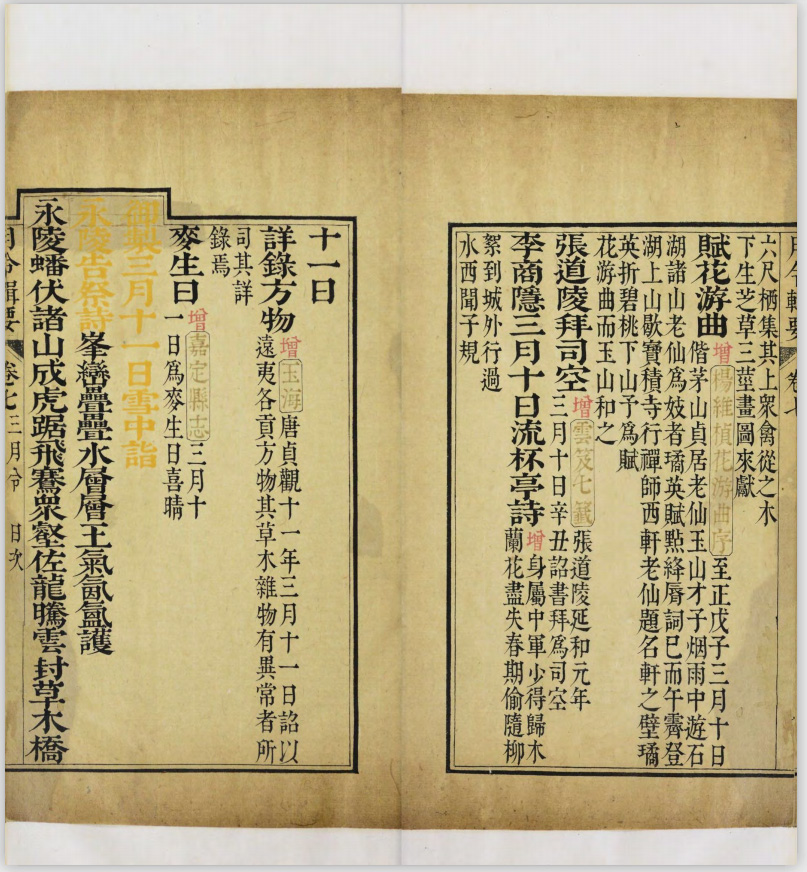 六尺栖集其上衆禽從之木
下生芝草三莖畫圖來獻
賦花游曲 增 楊維楨花游曲序 至正戊子三月十日
偕茅山貞居老仙玉山才子烟雨中遊石
湖諸山老仙爲妓者璚英賦點絳脣詞已而午霽登
湖上山歇寶積寺行禪師西軒老仙題名軒之壁璚
英折碧桃下山予爲賦
花游曲而玉山和之
張道陵拜司空 增 雲笈七籤 張道陵延和元年
三月十日辛丑詔書拜爲司空
李商隱三月十日流杯亭詩 增 身屬中軍少得歸木
蘭花盡失春期偷隨柳
絮到城外行過
水西聞子規
十一日
詳錄方物 增 玉海 唐貞觀十一年三月十一日詔以
遠夷各貢方物其草木雜物有異常者所
司其詳
錄焉
麥生日 增 嘉定縣志 三月十
一日爲麥生日喜晴
御製三月十一日雪中詣
永陵告祭詩 峯巒疊疊水層層王氣氤氳護
永陵蟠伏諸山成虎踞飛騫衆壑佐龍騰雲封草木橋
月令輯要 卷七 三月令 日次